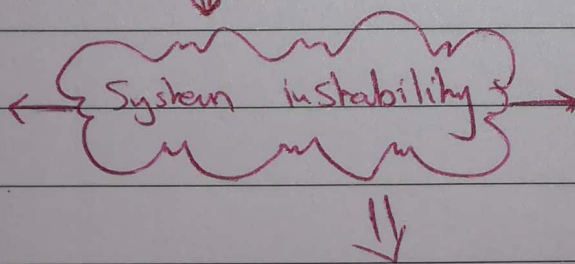 System instability